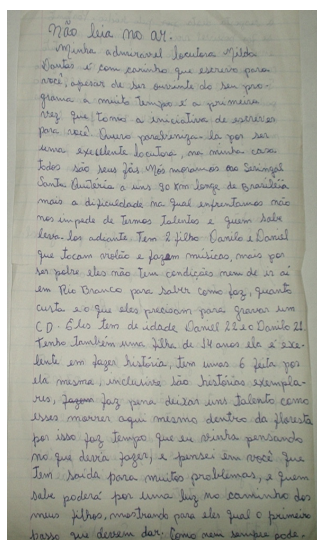 Não leia no ar.
Minha admirável locutora Nilda
Dantas é com carinho que escrevo para
você, apesar de ser ouvinte do seu pro-
grama a muito tempo é a primeira
vez que tomo a iniciativa de escrever
para você. Quero parabeniza-la por ser
uma excelente locutora, na minha casa
todos são seus fãs. Nós moramos no Seringal
Santa Quitéria a uns 90 km longe de Brasiléia
mais a dificuldade na qual enfrentamos não
nos impede de termos talentos e quem sabe
leva-los adiante. Tem 2 filho Danilo e Daniel
que tocam violão e fazem músicas, mais por
ser pobre eles não tem condições nem de ir aí
em Rio Branco para saber como faz, quanto
custa e o que eles precisam para gravar um
CD. Eles tem de idade Daniel 22 e o Danilo 21.
Tenho também uma filha de 14 anos ela é exe-
lente em fazer história, tem umas 6 feita por
ela mesma, incluisse são histórias exempla-
res, faz pena deixar uns talento como
esses morrer aqui mesmo dentro da floresta
por isso faz tempo que eu vinha pensando
no que devia fazer, e pensei em você que
tem saída para muitos problemas, e quem
sabe poderá por uma luz no caminho dos
meus filhos, mostrando para eles qual o primeiro
passo que devem dar. Como nem sempre pode,